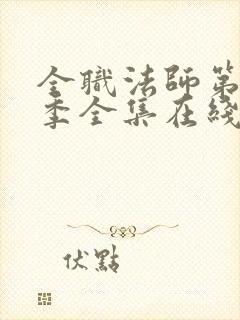 全職法師第
季全集在綫
伏點